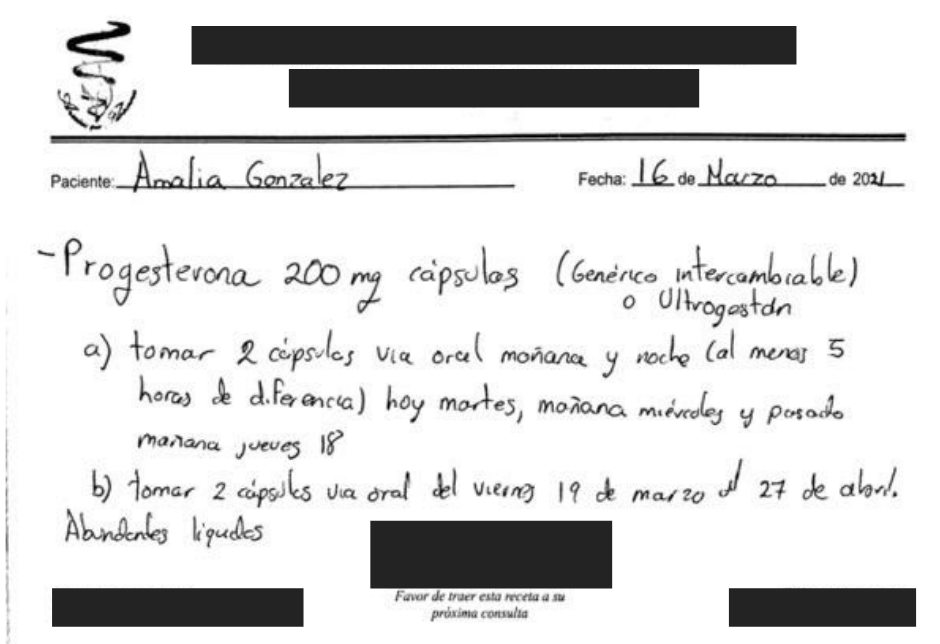 Paciente: Amalia Gonzalez Fecha: 16 de Marzo de 2021
- Progesterona 200 mg cápsulas (Genérico intercambiable)
o Ultrogestan
a) tomar 2 cápsulas via oral mañana y noche (al menos 5
horas de diferencia) hoy martes, mañana miércoles y pasado
mañana jueves 18
b) tomar 2 cápsulas via oral del viernes 19 de marzo al 27 de abril.
Abundantes liquidos
Favor de traer esta receta a su
próxima consulta